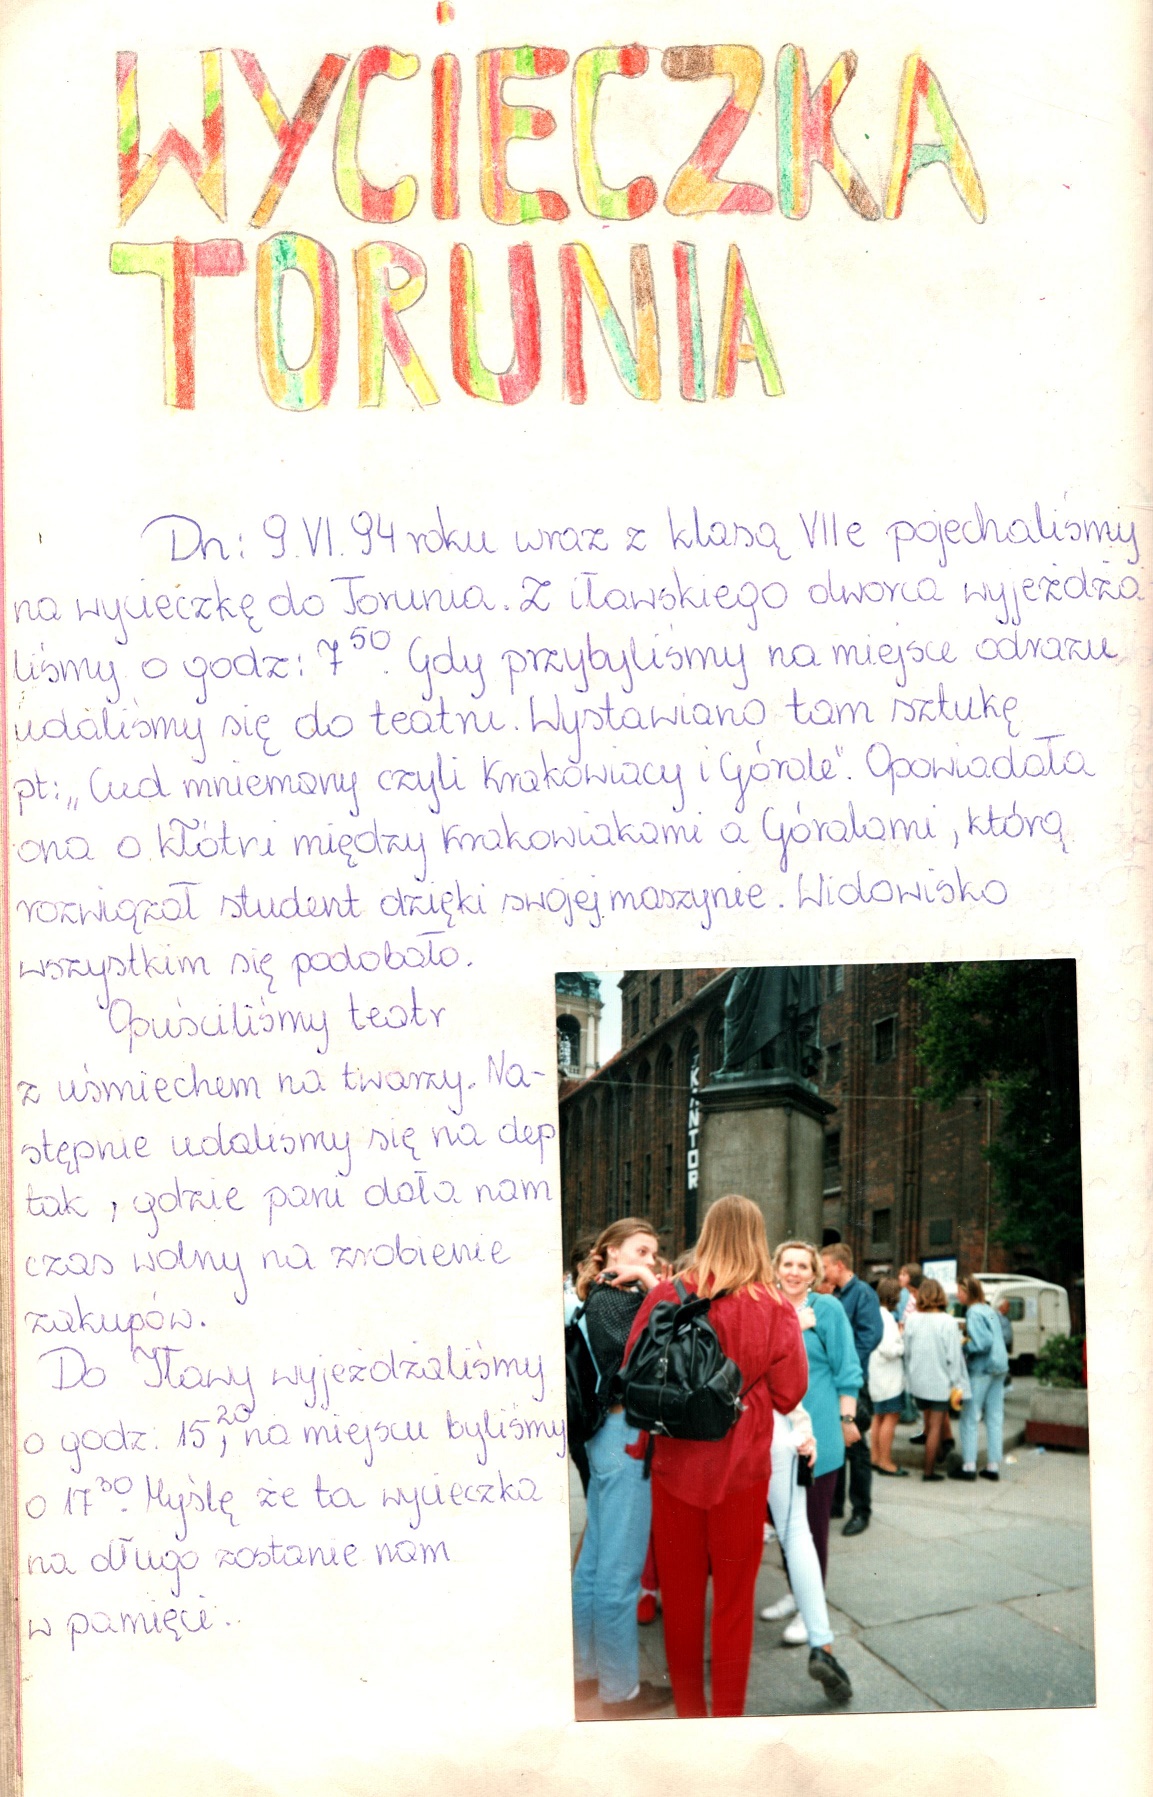 WYCIECZKA
TORUNIA
Dn: 9.VI.94 roku wraz z klasą VII e pojechaliśmy
na wycieczkę do Torunia. Z iławskiego dworca wyjeżdża
liśmy o godz: 7⁵⁰. Gdy przybyliśmy na miejsce odrazu
udaliśmy się do teatru. Wystawiano tam sztukę
pt: „Cud mniemany czyli Krakowiacy i Górale". Opowiadała
ona o kłótni między Krakowiakami a Góralami, którą
rozwiązał student dzięki swojej maszynie. Widowisko
wszystkim się podobało.
Opuściliśmy teatr
z uśmiechem na twarzy. Na-
stępnie udaliśmy się na dep
tak, gdzie pani dała nam
czas wolny na zrobienie
zakupów.
Do Iławy wyjeżdżaliśmy
o godz: 15²⁰, na miejscu byliśmy
o 17³⁰. Myślę że ta wycieczka
na długo zostanie nam
w pamięci.
KANTOR